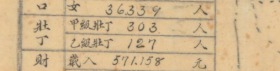 口 女 36339 人
壯丁 甲級壯丁 303 人
乙級壯丁 127 人
財 歲入 571.158 元